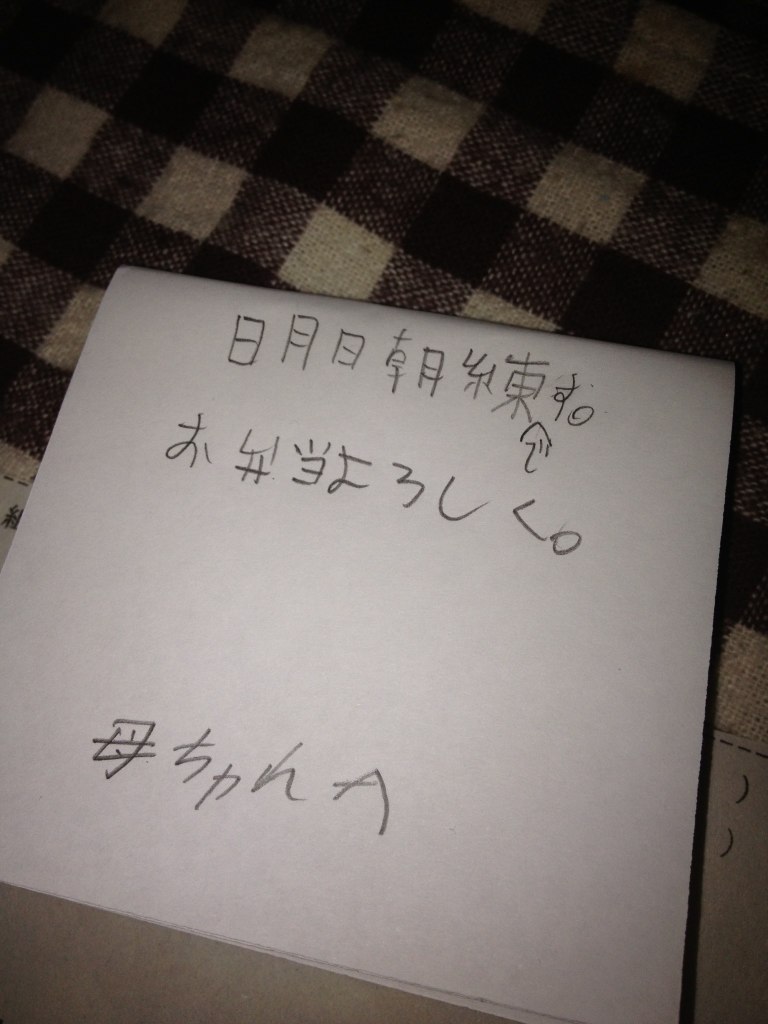 明日朝練す。
で
お弁当よろしく。
母ちゃんへ